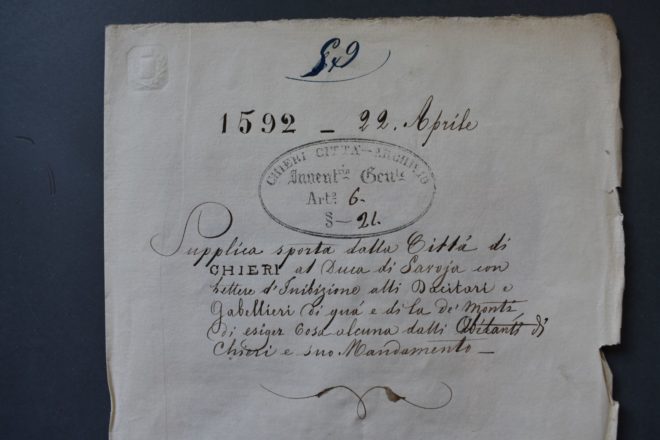 1592 - 22. Aprile
CHIERI CITTÀ - ARCHIVIO
Invent.rio Gen.le
Art.o 6.
§ - 21.
Supplica sporta dalla Città di
CHIERI al Duca di Savoja con
Lettere d'Inibizione alli Dacitari e
Gabellieri di quá e di la de' Monti
di esiger Cosa alcuna dalli Abitanti di
Chieri e suo Mandamento _